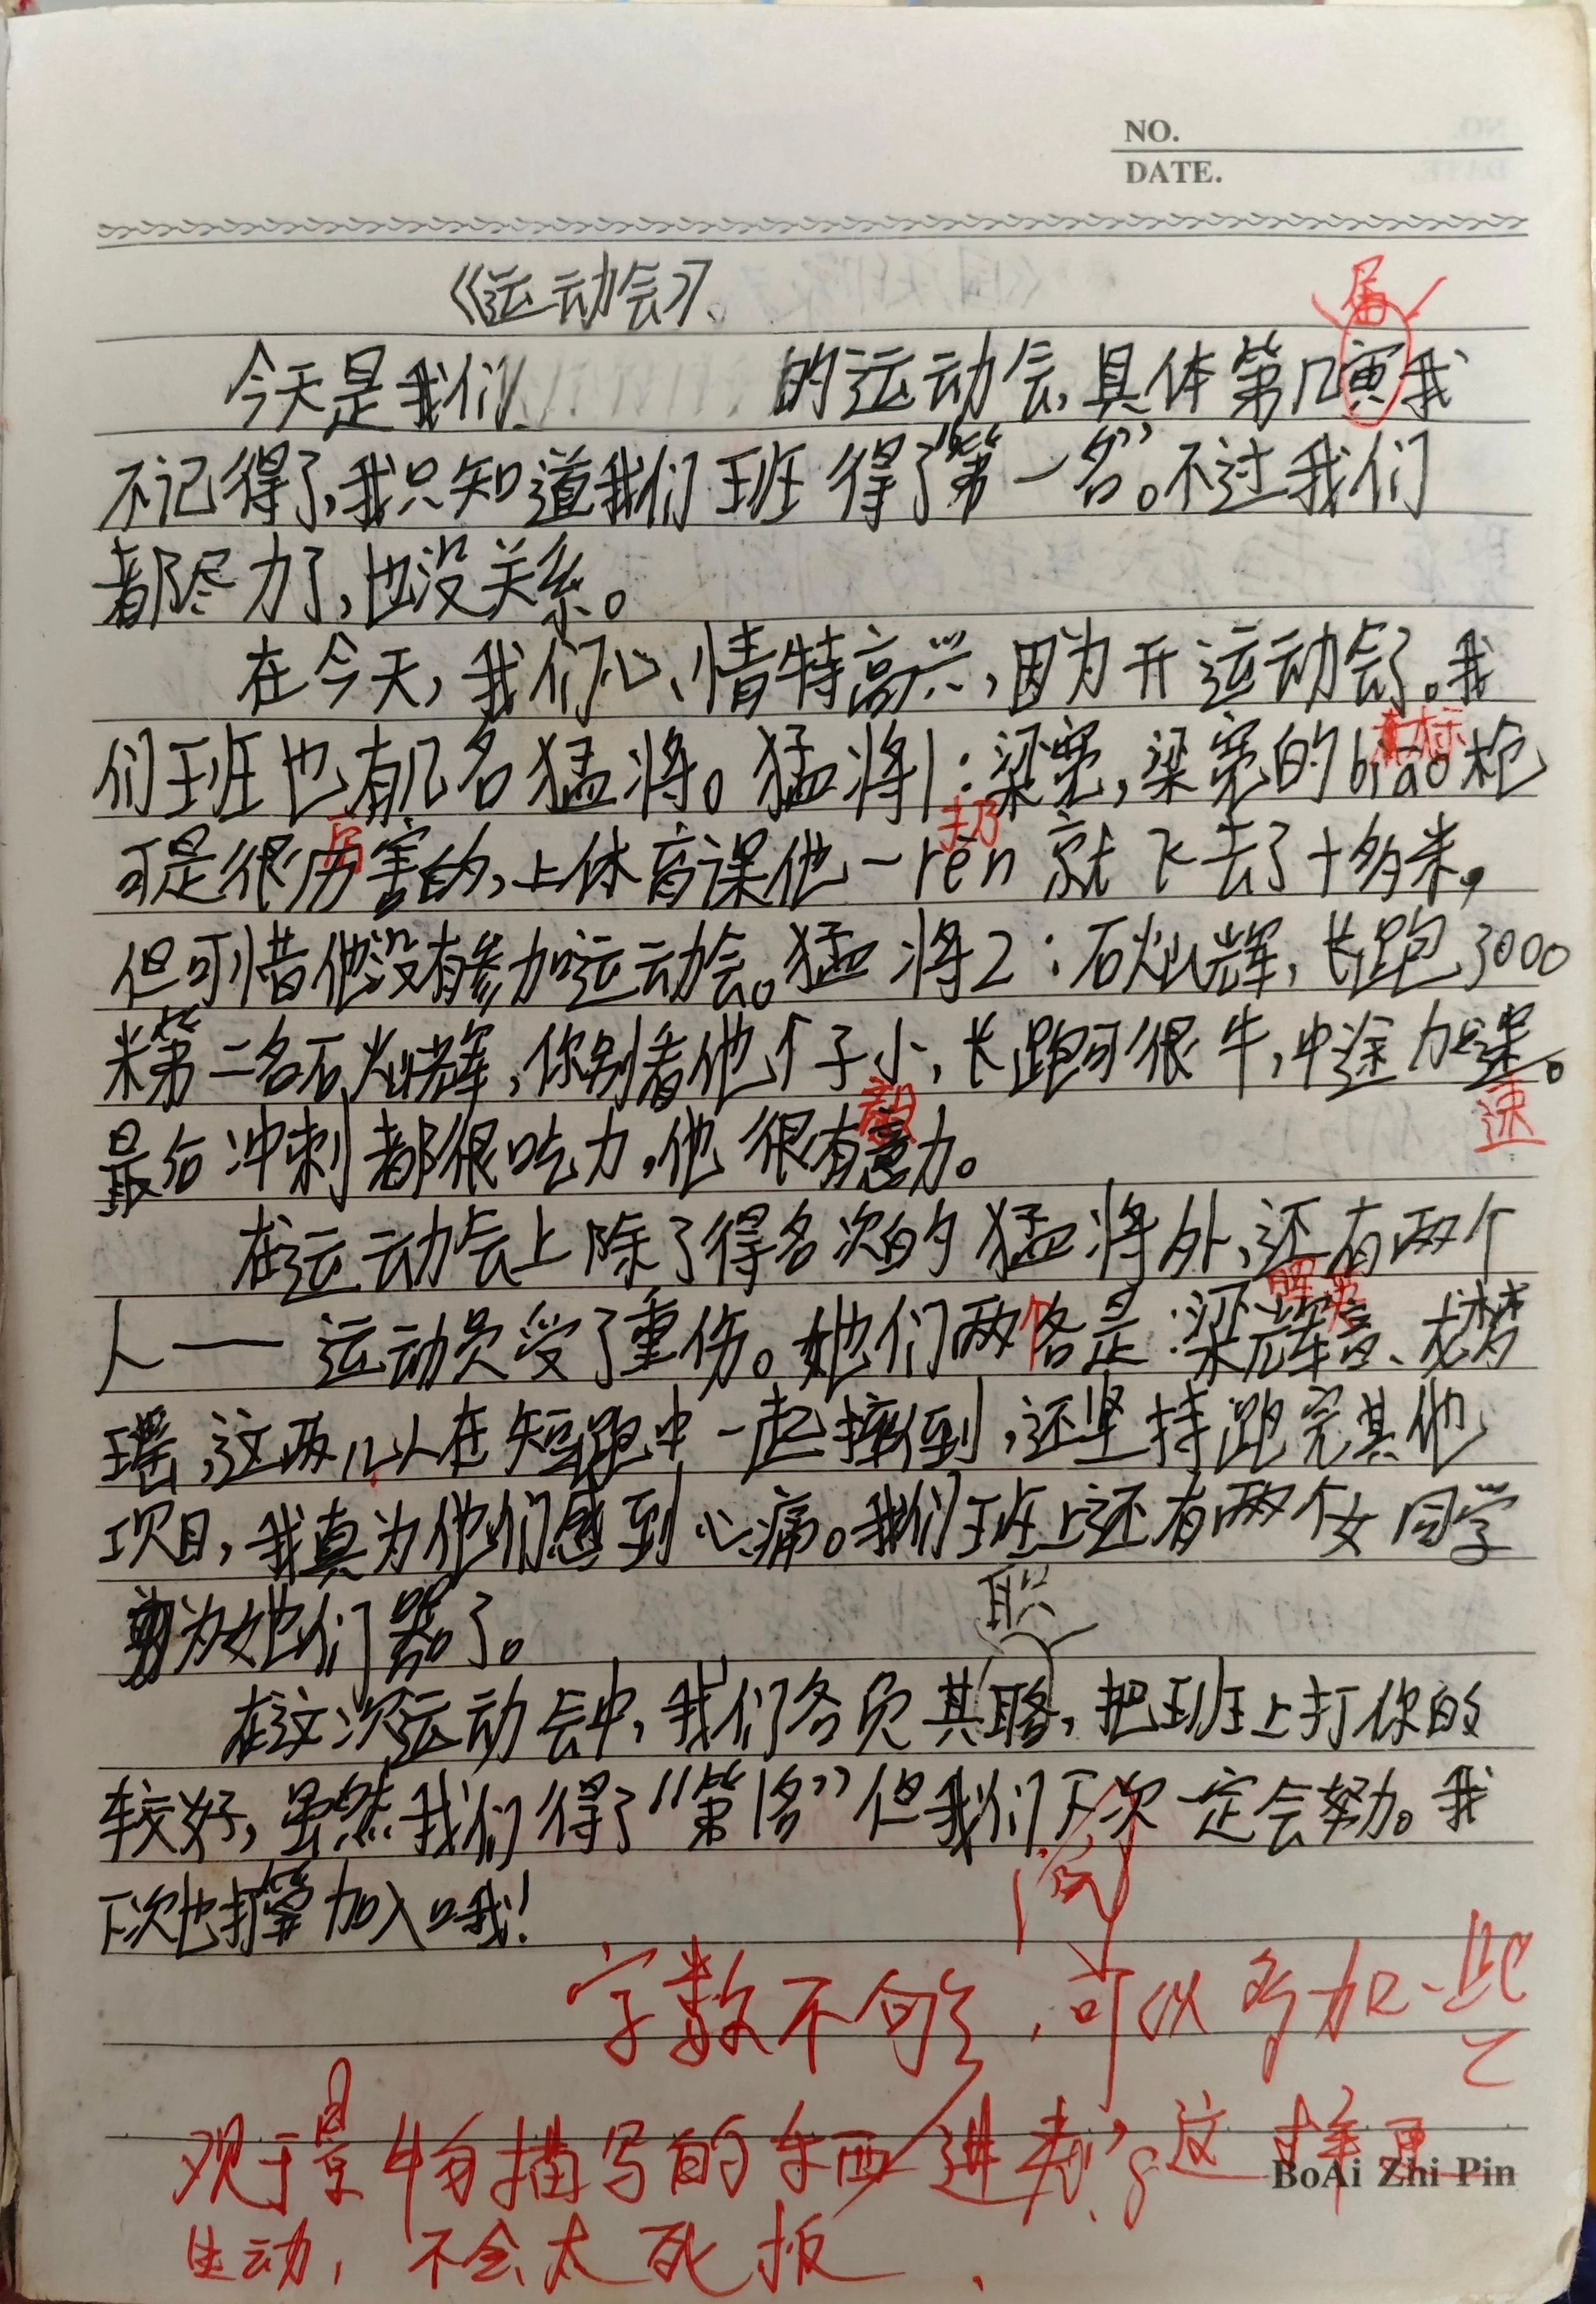 NO.
DATE.
《运动会》。
届
今天是我们 的运动会,具体第几寅我
不记得了,我只知道我们班得了“第一名”。不过我们
都尽力了,也没关系。
在今天,我们心情特高兴,因为开运动会了。我
标
们班也有几名猛将。猛将1:梁宽,梁宽的biao枪
厉 扔
可是很历害的,上体育课他一rēn就飞去了十多米,
但可惜他没有参加运动会。猛将2:石灿辉,长跑3000
米第二名石灿辉,你别看他个子小,长跑可很牛,中途加
速
毅
最后冲刺都很吃力,他很有意力。
在运动会上除了得名次的猛将外,还有两个
人——运动员受了重伤。她们两个是:梁、龙梦
瑶,这两人在短跑中一起摔倒,还坚持跑完其他
项目,我真为他们感到心痛。我们班上还有两个女同学
为她们哭了。
职
在这次运动会中,我们各负其,把班上打你的
较好,虽然我们得了“第1名”但我们下次一定会努力。我
下次也打算加入哦!
字数不够,可以多加一些
观于景物描写的东西进来,这样更
生动,不会太死板
BoAi Zhi Pin